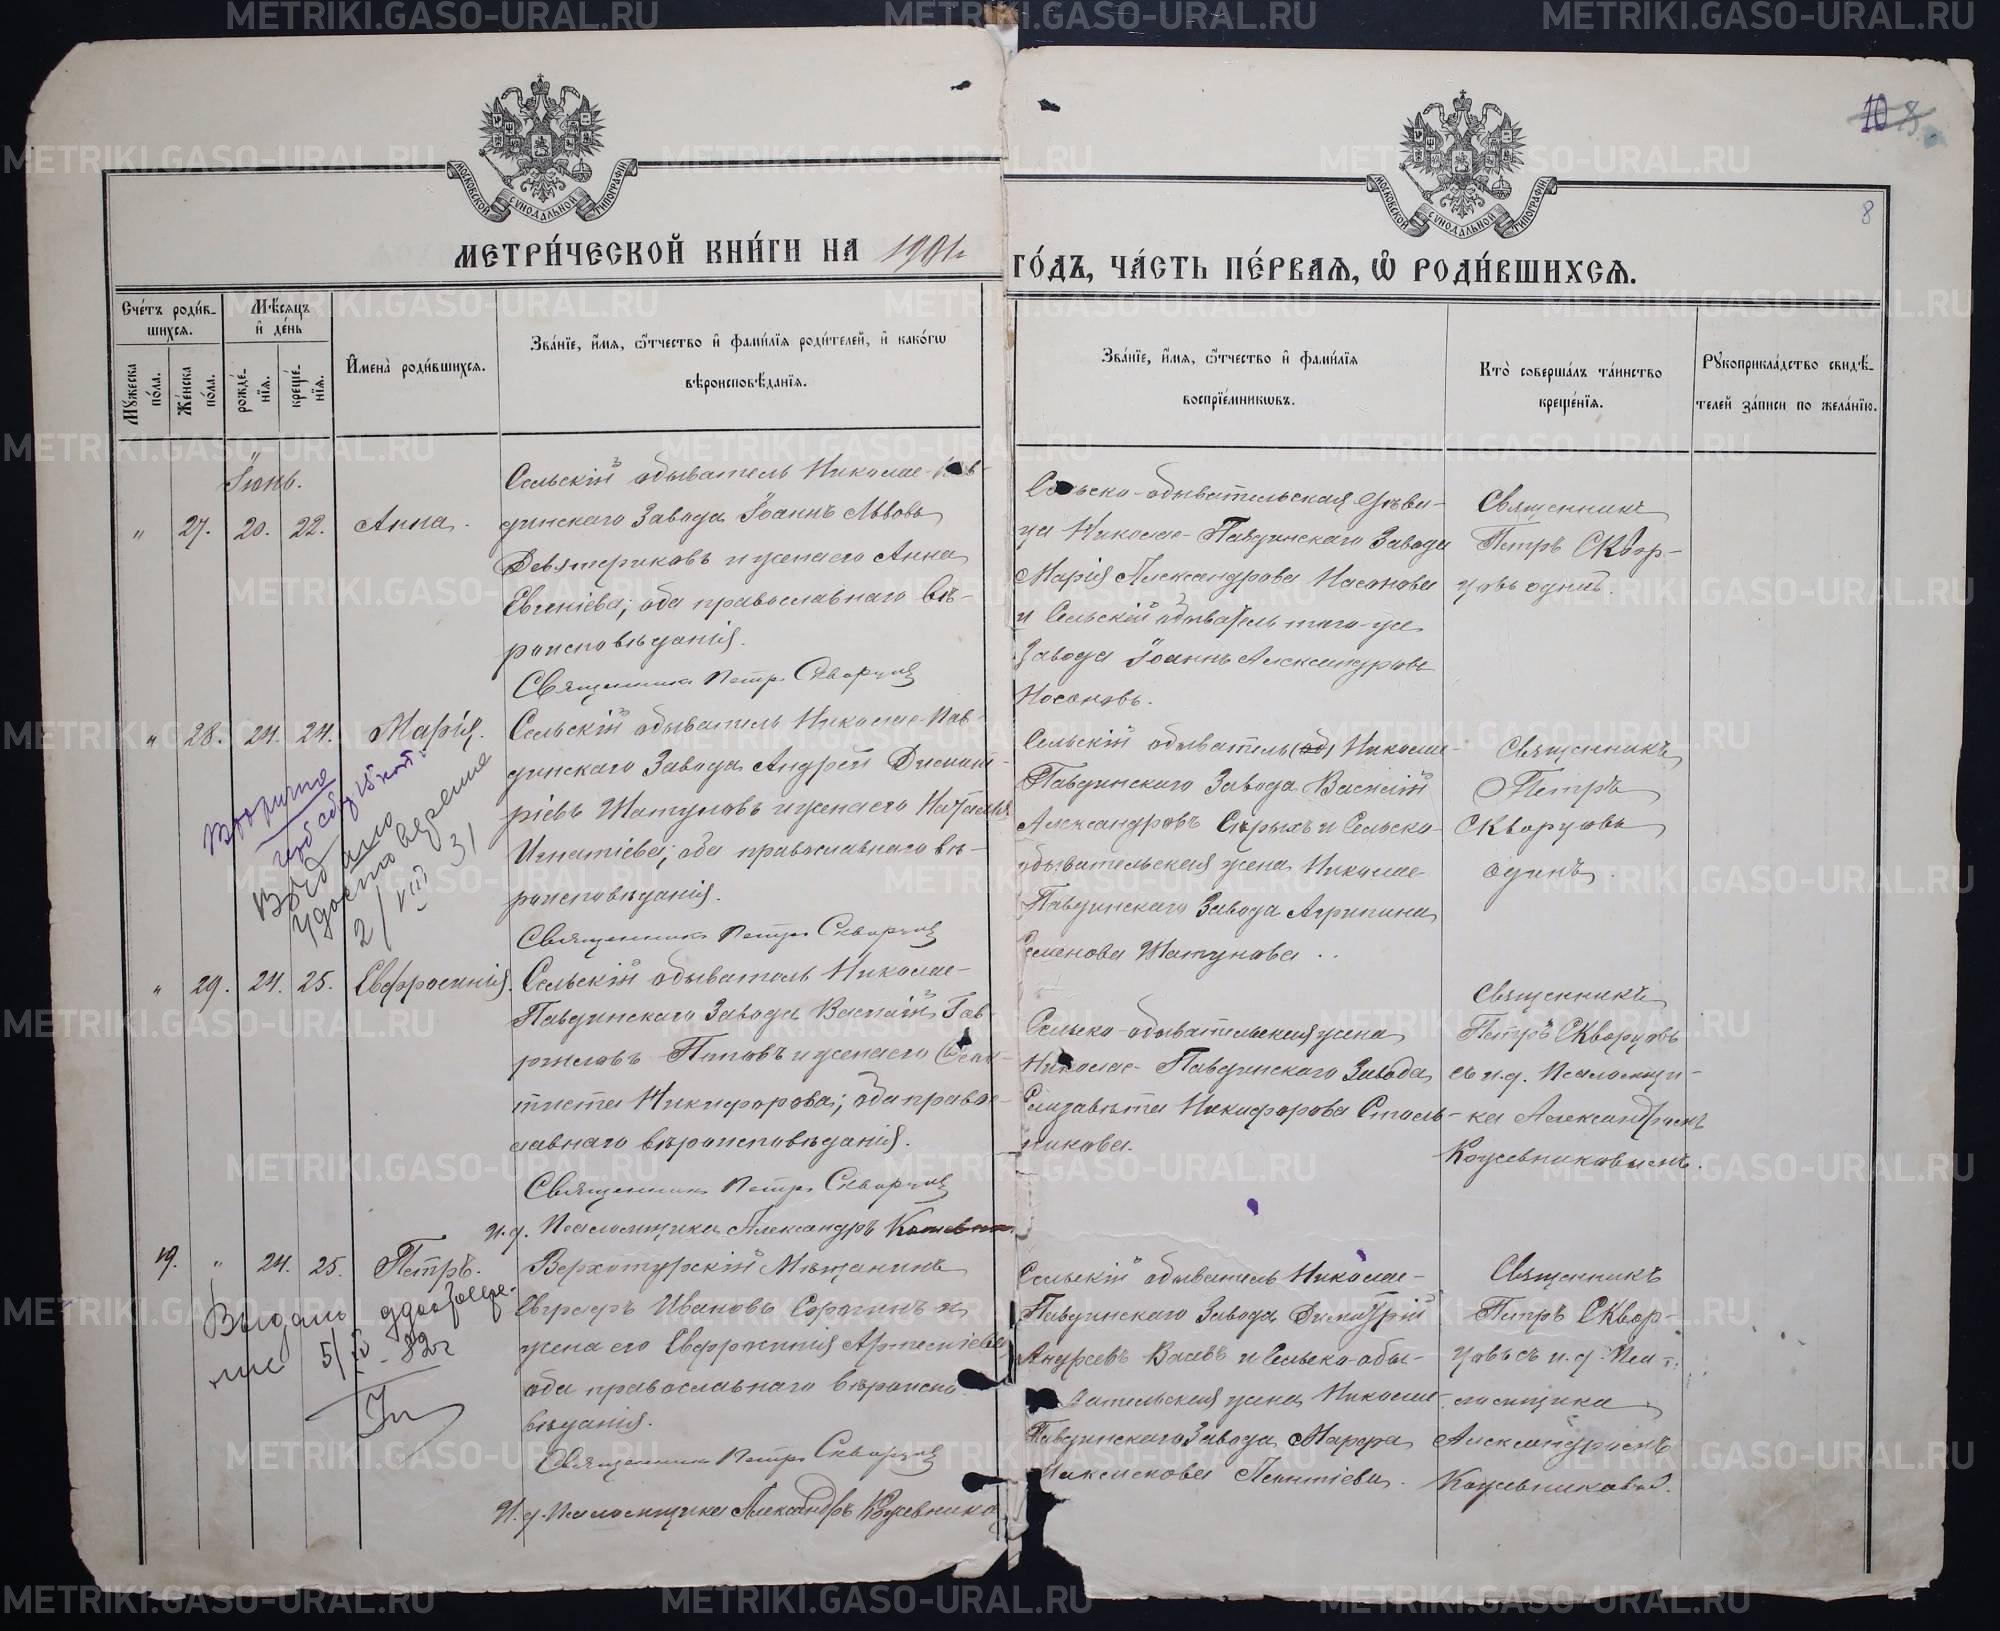 МЕТРИ́ЧЕСКОЙ КНИ́ГИ НА 1901 г
ГО́ДЪ, ЧА́СТЬ ПЕ́РВАЯ, Ѽ РОДИ́ВШИХСЯ.
МОСКОВСКОЙ СУНОДАЛЬНОЙ ТИПОГРАФІИ
МОСКОВСКОЙ СУНОДАЛЬНОЙ ТИПОГРАФІИ
10
8
Сче́тъ роди́в-
шихся.
Мужеска по́ла.
Же́нска по́ла.
Мѣ́сяцъ
и҆ де́нь
рожде́нїя.
креще́нїя.
И҆мена̀ роди́вшихся.
Зва́нїе, и҆́мя, ѻ҆́тчество и҆ фами́лїя роди́телей, и҆ како́гѡ
вѣроисповѣ́данїя.
Зва́нїе, и҆́мя, ѻ҆́тчество и҆ фами́лїя
воспрїе́мникѡвъ.
Кто̀ соверша́лъ та́инство
креще́нїя.
Рукоприкла́дство свидѣ́-
телей за́писи по жела́нїю.
Іюнь.
" 27. 20. 22. Анна.
Сельскій обыватель Николае-Пав-
динскаго Завода Іоаннъ Львовъ
Девятериковъ и жена его Анна
Евгеніева; оба православнаго вѣ-
роисповѣданія.
Священникъ Петръ Скворцов
Сельско-обывательская дѣви-
ца Николае-Павдинскаго Завода
Марія Александрова Насонова
и Сельскій обыватель того-же
Завода Іоаннъ Александровъ
Носоновъ.
Священникъ
Петръ Сквор-
цовъ одинъ.
" 28. 24. 24. Марія.
Сельскій обыватель Николае-Пав-
динскаго Завода Андрей Димит-
ріевъ Шатуновъ и жена его Наталья
Игнатіева; оба православнаго вѣ-
роисповѣданія.
Священникъ Петръ Скворцов
Вторично
Выдано
удостоверение
2/VIII 31
Сельскій обыватель (об) Николае-
Павдинскаго Завода Василій
Александровъ Сѣрыхъ и Сельско-
обывательская жена Николае-
Павдинскаго Завода Агрипина
Семенова Шатунова ..
Священникъ
Петръ
Скворцовъ
одинъ.
" 29. 24. 25. Евфросинія.
Сельскій обыватель Николае-
Павдинскаго Завода Василій Гав-
риловъ Поповъ и жена его Феок-
тиста Никифорова; оба правос-
лавнаго вѣроисповѣданія.
Священникъ Петръ Скворцов
И. д. Псаломщика Александръ
Сельско-обывательская жена
Николае-Павдинскаго Завода
Елизавѣта Никифорова Столь-
никова.
Священникъ
Петръ Скворцовъ
съ и.д. Псаломщи-
ка Александромъ
Кожевниковымъ.
19. " 24. 25. Петръ.
Верхотурскій Мѣщанинъ
Евграфъ Ивановъ Сорогинъ и
жена его Евфросинія Арсеніева
оба православнаго вѣроиспо-
вѣданія.
Священникъ Петръ Скворцов
И. д. Псаломщика Александръ Кожевников
Выдано
5/ - 32 г
Сельскій обыватель Николае-
Павдинскаго Завода Димитрій
Андреевъ Васевъ и Сельско-обы-
вательская жена Николае-
Павдинскаго Завода Марфа
Максимова Леонтіева.
Священникъ
Петръ Сквор-
цовъ съ и. д. Пса-
ломщика
Александромъ
Кожевниковы.